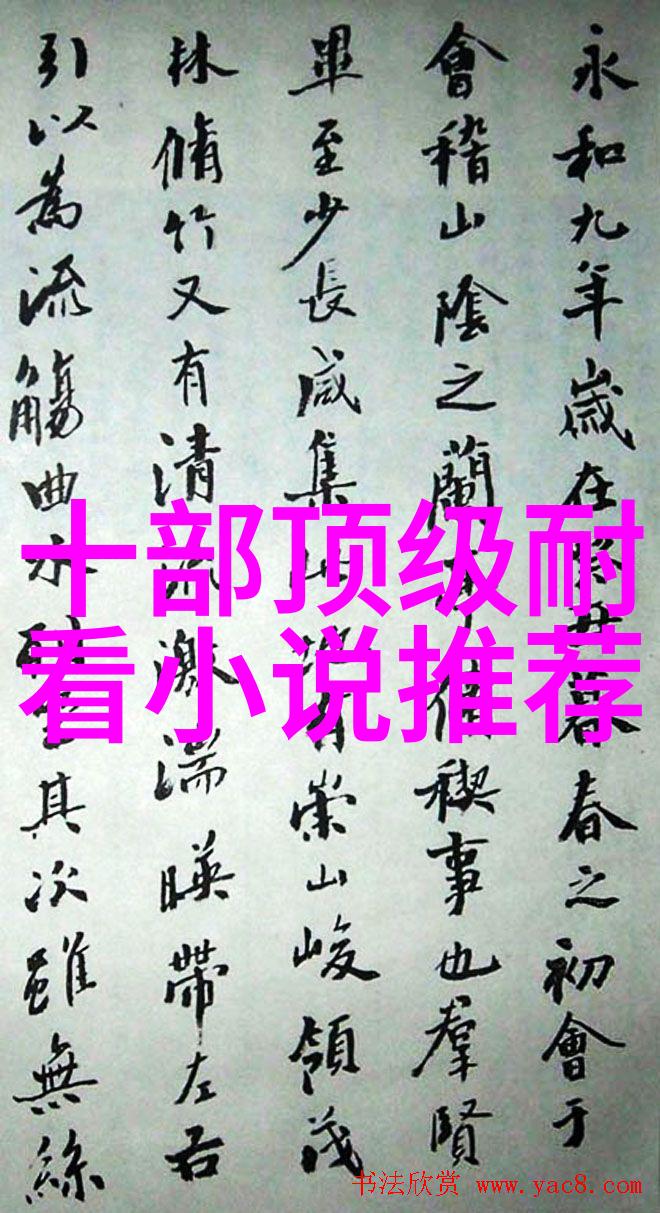 永和九年歲在癸丑暮春之初會于
會稽山陰之蘭亭脩禊事也羣賢
畢至少長咸集此地有崇山峻領茂
林脩竹又有清流激湍暎帶左右
引以為流觴曲水列坐其次雖無絲
十部顶级耐
看小说推荐
书法欣赏 www.yac8.com